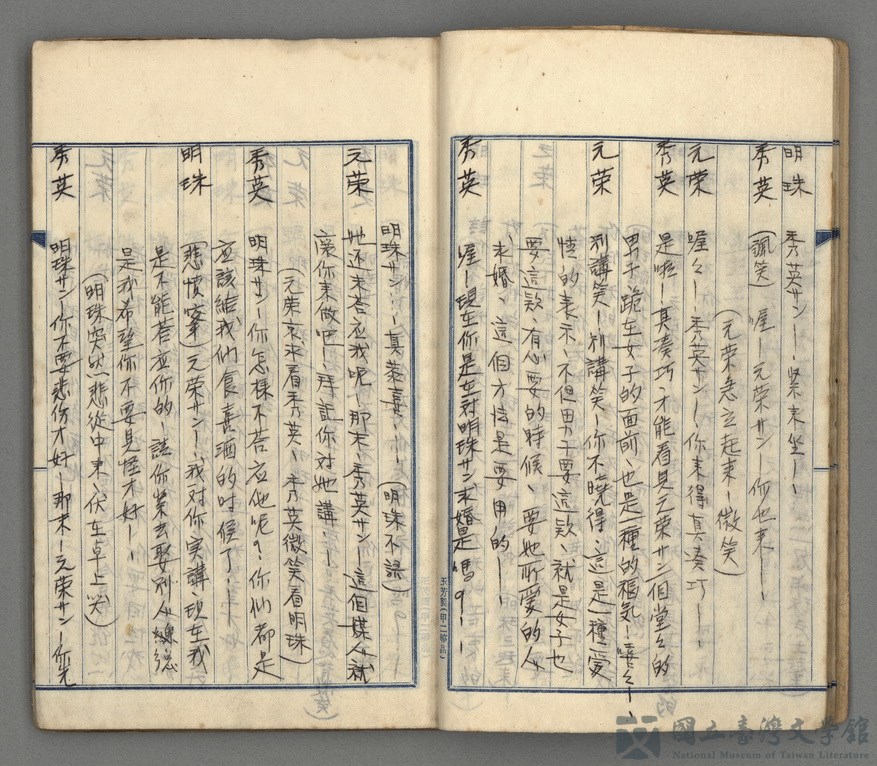 明珠　秀英サン──緊來坐──
秀英　(諷笑)喔─元荣サン 你也來──
(元荣急立起來─微笑)
元荣　喔々─秀英サン─你來得真凑巧──
秀英　是啦─真凑巧、才能看見元荣サン一個堂々的
男子、跪在女子的面前、也是一種的福気─
元荣　別講笑─別講笑─你不曉得、這是一種愛
情的表示、不但男子要這款、就是女子也
要這款、有心要的時候、要她所愛的人
求婚、這個方法是要用的──
秀英　喔─現在你是在対明珠サン求婚是嗎？──
明珠サン──真恭喜─(明珠不語)
元荣　她还未答应我呢─那末、秀英サン─這個媒人就
讓你來做吧──拜託你対她講──
(元荣哀求看秀英、秀英微笑看明珠)
秀英　明珠サン─你怎様不答应他呢？你們都是
应該給我們食喜酒的时候了──
明珠　(悲憤)元荣サン─我对你実講、現在我
是不能答应你的─請你緊去娶別人
是我希望你不要見怪才好──
(明珠突然悲從中來、伏在卓上哭)
秀英　明珠サン─你不要悲伤才好─那末─元荣サン─你先
國立臺灣文學館
National Museum of Taiwan Literature